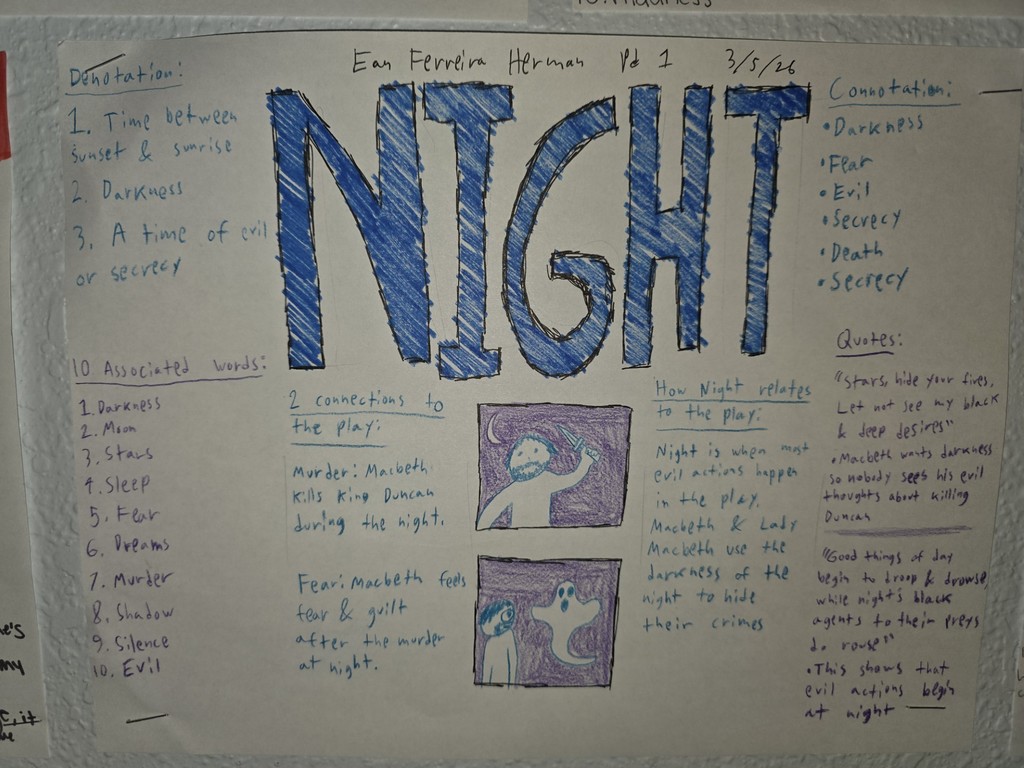 10. Madness
Ean Ferreira Herman Pd 1 3/5/26
NIGHT
Denotation:
1. Time between
sunset & sunrise
2. Darkness
3. A time of evil
or secrecy
Connotation:
•Darkness
•Fear
•Evil
•Secrecy
•Death
•Secrecy
10 Associated words:
1. Darkness
2. Moon
3. Stars
4. Sleep
5. Fear
6. Dreams
7. Murder
8. Shadow
9. Silence
10. Evil
2 connections to
the play:
Murder: Macbeth
kills King Duncan
during the night.
Fear: Macbeth feels
fear & guilt
after the murder
at night.
How Night relates
to the play:
Night is when most
evil actions happen
in the play.
Macbeth & Lady
Macbeth use the
darkness of the
night to hide
their crimes
Quotes:
"Stars, hide your fires,
Let not see my black
& deep desires"
•Macbeth wants darkness
so nobody sees his evil
thoughts about killing
Duncan
"Good things of day
begin to droop & drowse,
while night's black
agents to their preys
do rouse"
•This shows that
evil actions begin
at night
my
it